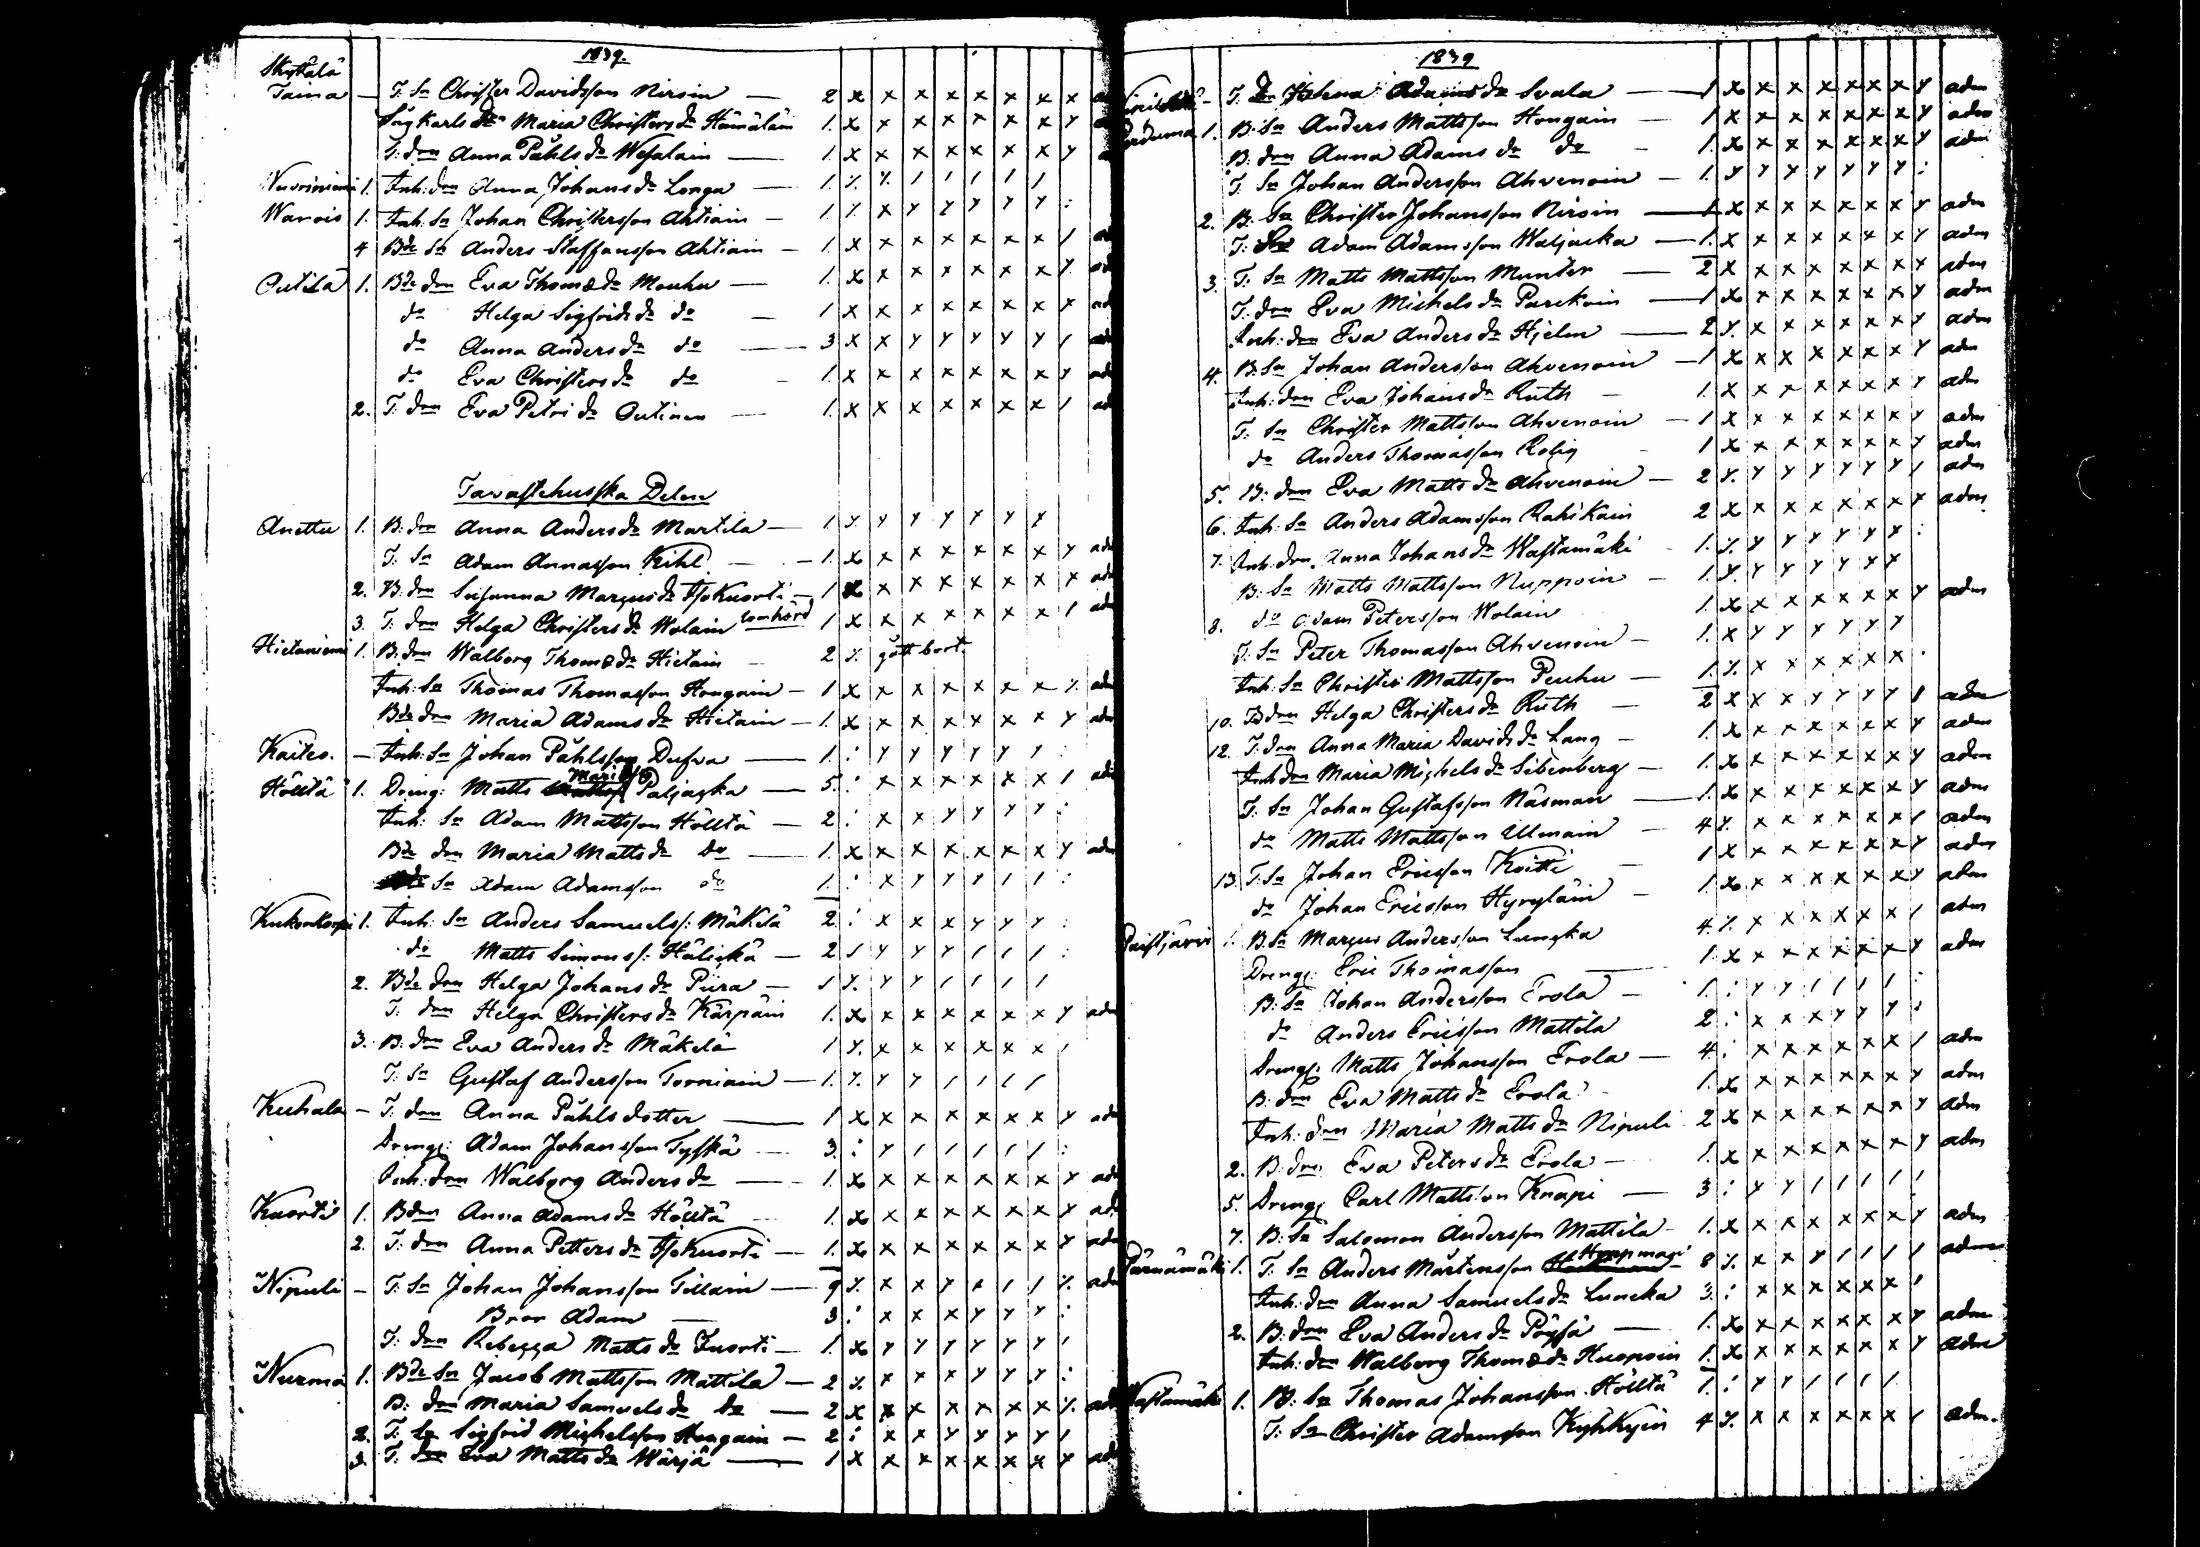 1839.
Skyttälä
Taina — T. Sn Christer Davidsson Niroin — 2 x x x x x x x x
Sågkarls dr Maria Christers dr Hämäläin 1. x x x x x x x y
T. dm Anna Påhls dr Wesalain — 1. x x x x x x x y
Nuoriniemi 1. Inh: dm Anna Johans dr Longa — 1. /. /. / / / / /
Warois 1. Inh. Sn Johan Christersson Ahtiain — 1. /. x y y y y y :
4 Bde Sn Anders Staffansson Ahtiain — 1. x x x x x x x / ad
Outila 1. Bde dm Eva Thomæ dr Mouhu — 1. x x x x x x x y. ad
do Helga Sigfrids dr do — 1 x x x x x x x x ad
do Anna Anders dr do — 3 x x y y y y y / ad
do Eva Christers dr do - 1. x x x x x x x y ad
2. T. dm Eva Petri dr Outinen — 1. x x x x x x x / ad
Tavastehusska Delen
Anettu 1. B. dm Anna Anders dr Martila — 1 y. y y y y y y
T. Sn Adam Annasson Kihl — 1. x x x x x x x y adm
2. B. dm Susanna Marcus dr Isokuorti — 1 x x x x x x x x adm
3. T. dm Helga Christers dr Wolain lomhörd 1 x x x x x x x / adm
Hietaniemi 1. B. dm Walborg Thomæ dr Hietain — 2 /. gått bort
Inh: Sn Thomas Thomasson Hongain — 1 x x x x x x x /. adm
Bde dm Maria Adams dr Hietain — 1. x x x x x x x y adm
Kaites. — Inh: Sn Johan Påhlsson Dufva — 1. : y y y y y y :
Hölttä 1. Dreng: Matts Mariæs. Paljacka — 5. : x x x x x x / adm
Inh: Sn Adam Mattsson Hölttä — 2 : x x y y y y :
Bde dm Maria Matts dr do — 1. x x x x x x x y adm
Sn Adam Adamsson do 1. : x y y y / / :
Kukonkorpi 1. Inh: Sn Anders Samuels/: Mäkelä 2 : x x x y y y :
do Matts Simons/: Hälickä — 2 / y y y / / / :
2. Bde dm Helga Johans dr Piira — 1 y. y y / / / /
T: dm Helga Christers dr Kärpäin 1. x x x x x x x y adm
3. B. dm Eva Anders dr Mäkelä 1 y. x x x x x x /
T: Sn Gustaf Andersson Torniain — 1. y. y y / / / /
Kuhala — T. dm Anna Påhlsdotter — 1 x x x x x x x y adm
Drengg: Adam Johansson Tyskä — 3. : y / / / / / :
Inh. dm Walborg Anders dr — 1. x x x x x x x y adm
Kuortis 1. B dm Anna Adams dr Hölttä 1. x x x x x x x y ad
2. T: dm Anna Petters dr Isokuorti — 1. x x x x x x x y adm
Nipuli — T. Sn Johan Johansson Tillain — 9 /. x x y x / / /. adm
Bror Adam — 3 : x x x y y y :
T. dm Rebecca Matts dr Kuorti — 1. x y y y y y y /
Nurma 1. Bde Sn Jacob Mattsson Mattila — 2 y. x x x y y y :
B. dm Maria Samuels dr do — 2 x x x x x x x /. ad
2. T. Sn Sigfrid Michelsson Hongain — 2 : x x y y y y /
3. T. dm Eva Matts dr Wärjä — 1 x x x x x x x y ad
1839
T. Helena Adams dr Svala — 1 x x x x x x x y adm
1. B. Sn Anders Mattsson Hongain — 1 x x x x x x x y adm
B. dm Anna Adams dr do — 1. x x x x x x x y adm
T. Sn Johan Andersson Ahvenoin — 1. y y y y y y y :
2. B. Sn Christer Johansson Niroin — 1 x x x x x x x y adm
T. Sn Adam Adamsson Waljacka — 1. x x x x x x x y adm
3. T. Sn Matts Mattsson Munter — 2 x x x x x x x y adm
T. dm Eva Michels dr Parckoin — 1 x x x x x x x y adm
Inh: dm Eva Anders dr Hjelm — 2 y. x x x x x x y adm
4. B. Sn Johan Andersson Ahvenoin — 1 x x x x x x x y adm
Inh: dm Eva Johans dr Ruth — 1. x x x x x x x y adm
T. Sn Christer Mattsson Ahvenoin — 1 x x x x x x x y adm
do Anders Thomasson Rolig 1 x x x x x x x y adm
5. B. dm Eva Matts dr Ahvenoin — 2 y. y y y y y y / adm
6. Inh. Sn Anders Adamsson Rahikain 2 x x x x x x x y adm
7. Inh. dm Anna Johans dr Wastamäki 1. /. y y y y y y :
B. Sn Matts Mattsson Nuppoin — 1 y. y y y y y y
8. do Adam Petersson Wolain 1. x x x x x x x y adm
T. Sn Peter Thomasson Ahvenoin — 1. x y y y y y y
Inh. Sn Christer Mattsson Peuhu — 1. /. x x x x x x .
10. B dm Helga Christers dr Ruth — 2 x x x y y y y / adm
12. T. dm Anna Maria Davids dr Lang — 1. x x x x x x x y adm
Inh dm Maria Michels dr Sibenberg — 1. x x x x x x x y adm
T. Sn Johan Gustafsson Näsman — 1. x x x x x x x y adm
do Matts Mattsson Ullmain — 4 /. x x x x x x / adm
13. T. Sn Johan Ericsson Koitti — 1 x x x x x x x y adm
do Johan Ericsson Hyryläin — 1. x x x x x x x y adm
Puistjärvi 1. B. Sn Marcus Andersson Luncka 4 /. x x x x x x / adm
Drengg: Eric Thomasson — 1 x x x x x x x y adm
B. Sn Johan Andersson Erola — 1. : y y / / / / :
do Anders Ericsson Mattila 2 : x x x y y y :
Drengg. Matts Johansson Erola — 4 : x x x x x x / adm
B. dm Eva Matts dr Erola 1. x x x x x x x y adm
Inh: dm Maria Matts dr Nipuli 2 x x x x x x x y adm
2. B. dm Eva Peters dr Erola — 1. x x x x x x x y adm
5. Drengg Carl Mattsson Knapi — 3 : y y / / / / :
7. B. Sn Salomon Andersson Mattila — 1. x x x x x x x y adm
Pärnämäki 1. T. Sn Anders Mårtensson 8 /. x x y / / / / adm
Inh: dm Anna Samuels dr Luncka 3 : x x x x x x /
2. B. dm Eva Anders dr Pöysä — 1. x x x x x x x y adm
Inh: dm Walborg Thomæ dr Huopoin 1. x x x x x x x y adm
Wastamäki 1. B. Sn Thomas Johansson Hölttä 1. : y y / / / /
T. Sn Christer Adamsson Kyhkyin 4 /. x x x x x x / adm.